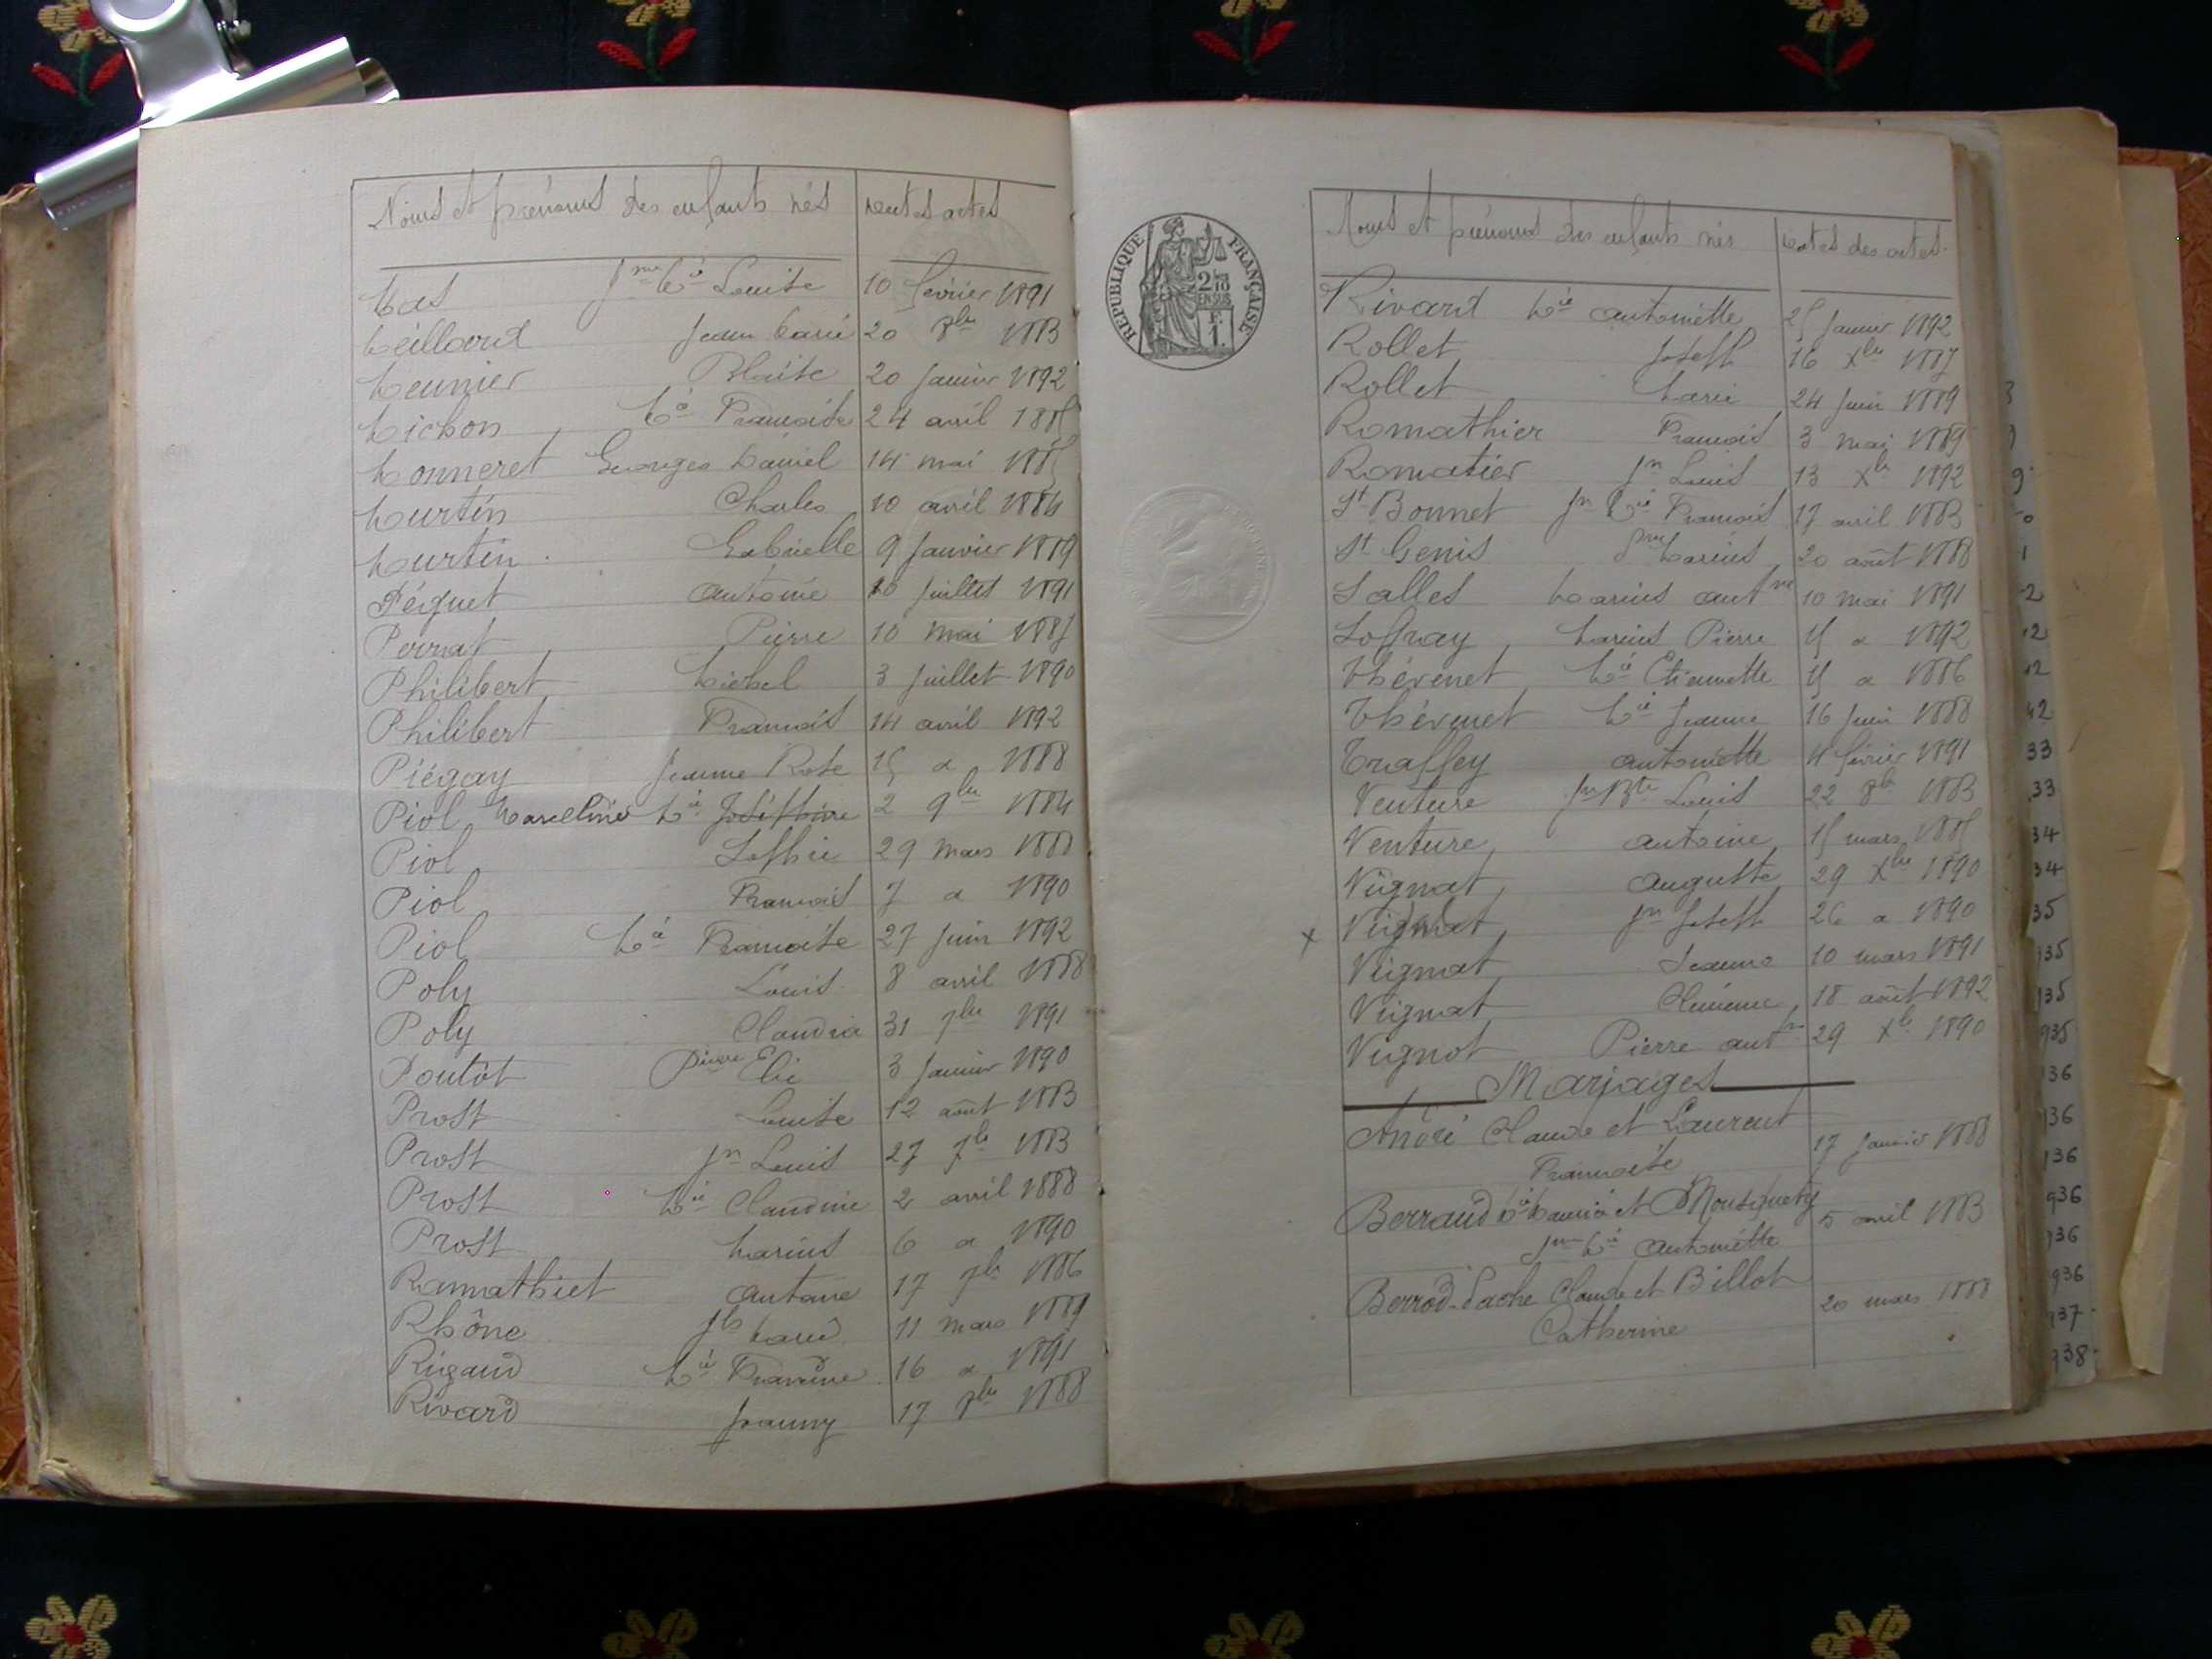 Noms et prénoms des enfants nés Dates actes
Mas Jne Mie Louise 10 février 1891
Meilland Jean Marie 20 8bre 1883
Meunier Blaise 20 Janvier 1892
Michon Mie Françoise 24 avril 1885
Monneret Georges Daniel 14 mai 1885
Murtin Charles 10 avril 1884
Murtin Gabrielle 9 Janvier 1889
Péguet Antoine 10 Juillet 1891
Perrat Pierre 10 Mai 1887
Philibert Michel 3 Juillet 1890
Philibert François 14 avril 1892
Piégay Jeanne Rose 15 a 1888
Piol Marceline Mie Joséphine 2 9bre 1884
Piol Sophie 29 Mars 1888
Piol François 7 a 1890
Piol Mie Françoise 27 Juin 1892
Poly Louis 8 avril 1888
Poly Claudia 31 7bre 1891
Poutôt Pierre Elie 3 Janvier 1890
Prost Louise 12 août 1883
Prost Jn Louis 27 7bre 1883
Prost Mie Claudine 2 avril 1888
Prost Marius 6 a 1890
Ramathiet Antoine 17 7bre 1886
Rhône Jph Marie 11 Mars 1889
Rigaud Mie Francine 16 a 1891
Rivard Fanny 17 8bre 1888
REPUBLIQUE FRANÇAISE
2/10 EN SUS
F. 1.
Noms et prénoms des enfants nés Dates des actes
Rivard Mie Antoinette 25 Janvier 1892
Rollet Joseph 16 Xbre 1887
Rollet Marie 24 Juin 1889
Romathier François 3 Mai 1889
Romatier Jn Louis 13 Xbre 1892
St Bonnet Jn Mie François 17 avril 1883
St Genis Marius 20 août 1888
Salles Marius Antne 10 Mai 1891
Soffray Marius Pierre 15 a 1892
Thévenet Mie Etiennette 15 a 1886
Thévenet Mie Jeanne 16 Juin 1888
Traffey Antoinette 4 février 1891
Venture Jn Bte Louis 22 8bre 1883
Venture Antoine 15 mars 1885
Vignat Auguste 29 Xbre 1890
x Vignat Jn Joseph 26 a 1890
Vignat Jeanne 10 mars 1891
Vignat Clémence 18 août 1892
Vignot Pierre Antne 29 Xbre 1890
Mariages
André Claude et Laurent
Françoise 17 Janvier 1888
Berraud et
Jne Mie Antoinette 5 avril 1883
Berrod-Lache Claude et Billot
Catherine 20 mars 1888